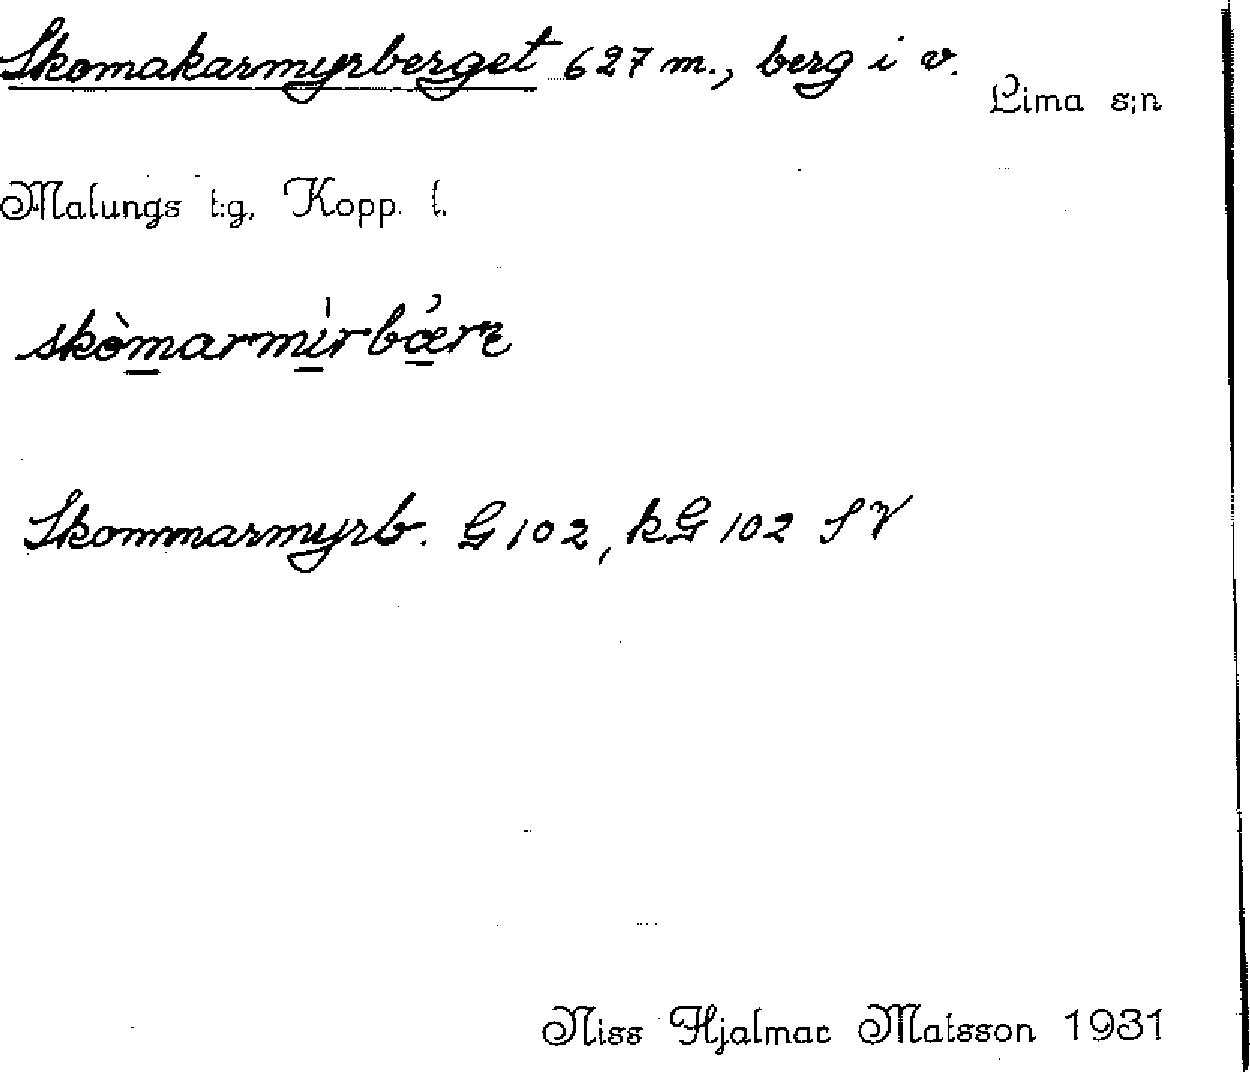 Skomakarmyrberget 627 m., berg i v.
Lima s:n
Malungs t:g. Kopp. l.
skòmarmìrbǽrɛ
Skommarmyrb. G 102, kG 102 SV
Niss Hjalmar Matsson 1931